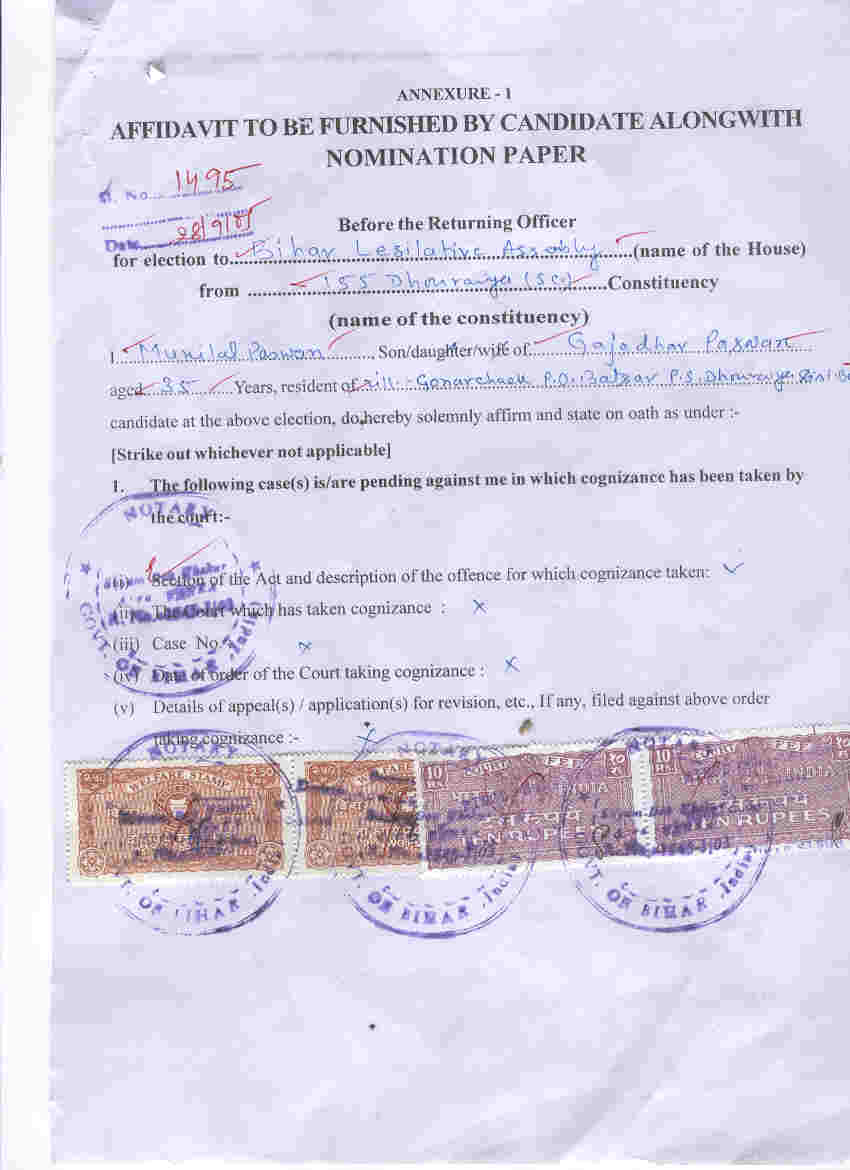 ANNEXURE - 1
AFFIDAVIT TO BE FURNISHED BY CANDIDATE ALONGWITH
NOMINATION PAPER
No. 1495
Date 28/9/05
Before the Returning Officer
for election to Bihar Lesilative Assembly (name of the House)
from 155 Dhouraiya (SC) Constituency
(name of the constituency)
I Munilal Paswan, Son/daughter/wife of Gajadhar Paswan
aged 35 Years, resident of vill:- Gonarchack P.O. Batsar P.S. Dhouraiya
candidate at the above election, do hereby solemnly affirm and state on oath as under :-
[Strike out whichever not applicable]
1. The following case(s) is/are pending against me in which cognizance has been taken by
the court:-
NOTARY
GOVT. OF BIHAR, India
(i) Section of the Act and description of the offence for which cognizance taken:
(ii) The Court which has taken cognizance : ×
(iii) Case No. ×
(iv) Date of order of the Court taking cognizance : ×
(v) Details of appeal(s) / application(s) for revision, etc., If any, filed against above order
taking cognizance :- ×
NOTARY NOTARY NOTARY
WELFARE STAMP
10 COURT FEE 10 COURT FEE
INDIA INDIA
TEN RUPEES TEN RUPEES
GOVT. OF BIHAR, India GOVT. OF BIHAR, India GOVT. OF BIHAR, India